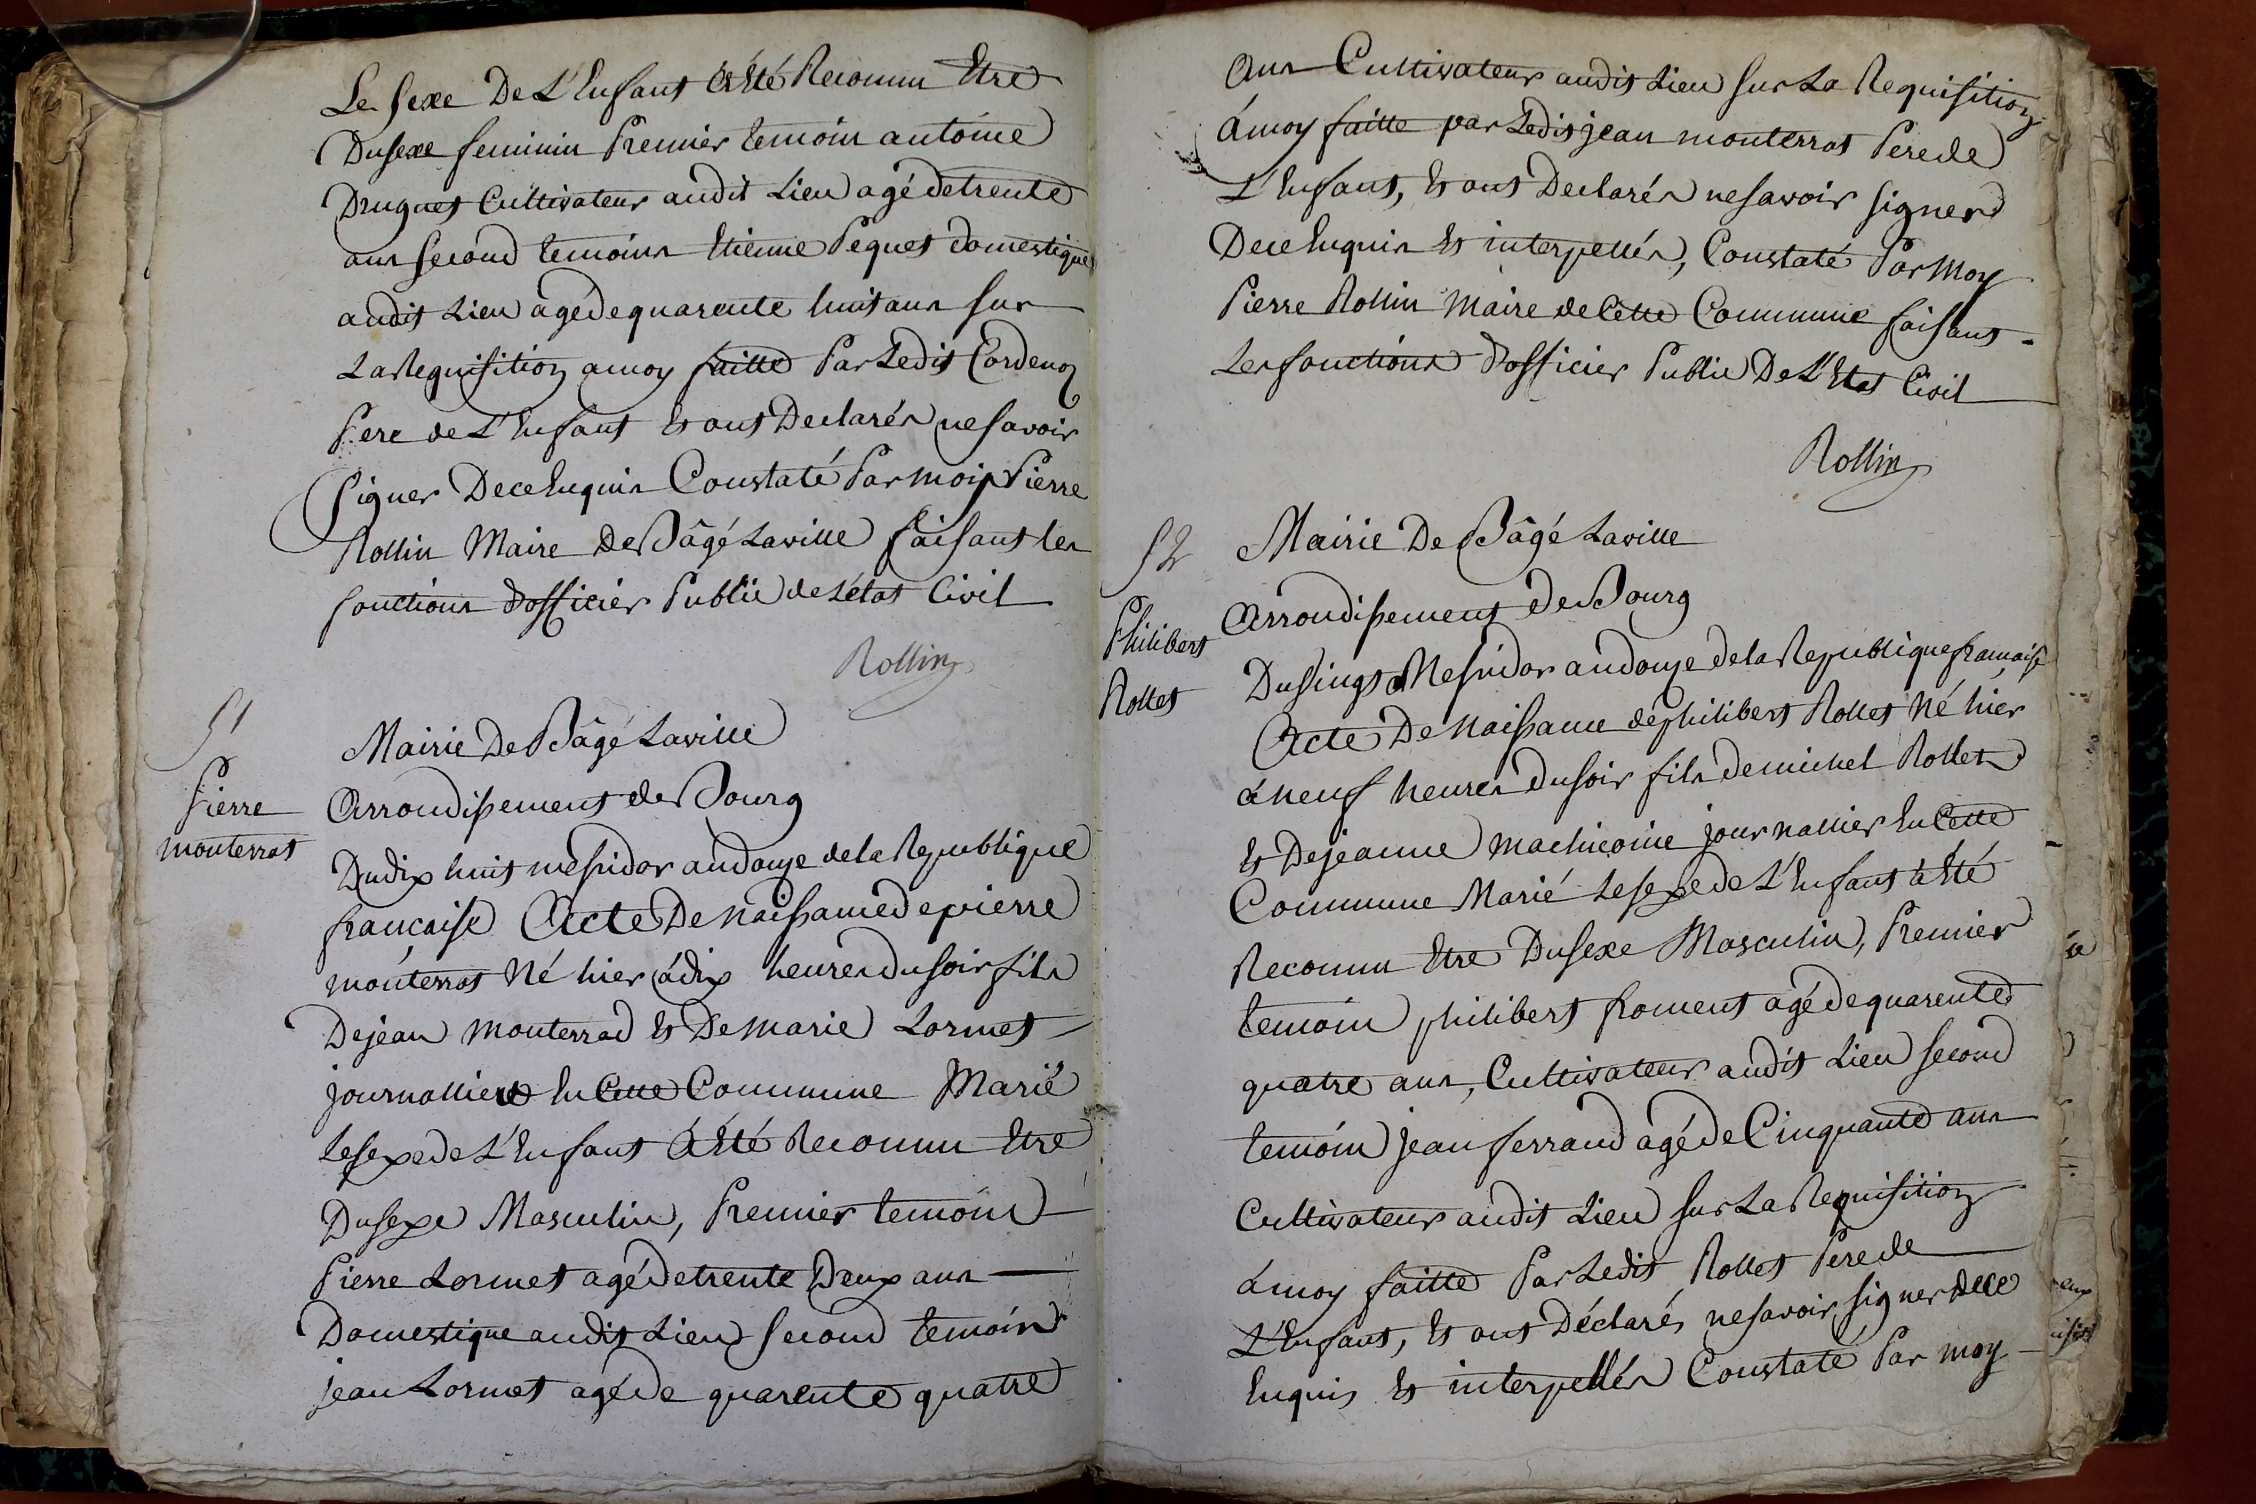 Le sexe De L'Enfant à Eté Reconnu Etre
Dusexe feminin Premier temoin antoine
Drugnet Cultivateur audit Lieu agé de trente
ans Second temoins Etienne Pequet domestique
audit Lieu agé de quarente huit ans sur
La Requisition a moy faitte Par Ledit Cordenoz
Pere de L'Enfant Et ont Declarés ne savoir
Signer De ce Enquis Constaté Par moi Pierre
Rollin Maire De Bâgé Laville faisant les
fonctions d'officier Public de L'état Civil
Rollin
51
Pierre
monterrat
Mairie De Bâgé Laville
Arrondissement de Bourg
Du dix huit messidor an douze de la Republique
francaise Acte De naissance de pierre
monterrat Né hier à dix heures du soir fils
De jean monterrad Et De marie Lormet
journallier En Cette Commune Marié
Le sexe de L'Enfant à Eté Reconnu Etre
Du sexe Masculin, Premier temoin
Pierre Lormet agé de trente Deux ans
Domestique audit Lieu Second temoin
jean Lormet agé de quarente quatre
ans Cultivateur audit Lieu sur La Requisition
à moy faitte par Ledit jean monterrat Pere de
L'Enfant, Et ont Declarés ne savoir signer
De ce Enquis Et interpellés, Constaté Par Moy
Pierre Rollin Maire de Cette Commune faisant
Les fonctions d'officier Public De L'Etat Civil
Rollin
52
Philibert
Rollet
Mairie De Bâgé Laville
Arrondissement De Bourg
Du Vingt Messidor an douze de la Republique francaise
Acte De Naissance de philibert Rollet Né hier
à neuf heures du soir fils de michel Rollet
Et De jeanne machicoine journallier En Cette
Commune Marié Le sexe de L'Enfant à Eté
Reconnu Etre Du sexe Masculin, Premier
temoin philibert froment agé de quarente
quatre ans, Cultivateur audit Lieu second
temoin jean ferrand agé de Cinquante ans
Cultivateur audit Lieu sur La Requisition
à moy faitte Par Ledit Rollet Pere de
L'Enfant, Et ont Déclarés ne savoir signer de ce
Enquis Et interpellés Constaté Par moy